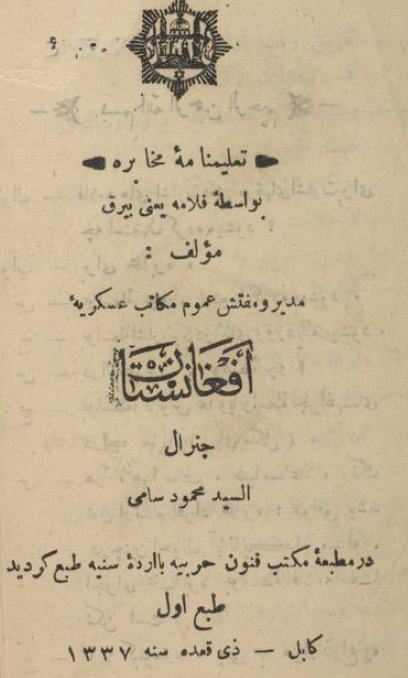 تعلیمنامهٔ مخابره
بواسطهٔ فلامه یعنی بیرق
مؤلف :
مدیر ومفتش عموم مکاتب عسکریهٔ
افغانستان
جنرال
السید محمود سامی
در مطبعهٔ مکتب فنون حربیه باارادهٔ سنیه طبع کردید
طبع اول
کابل — ذی قعده سنه ۱۳۳۷